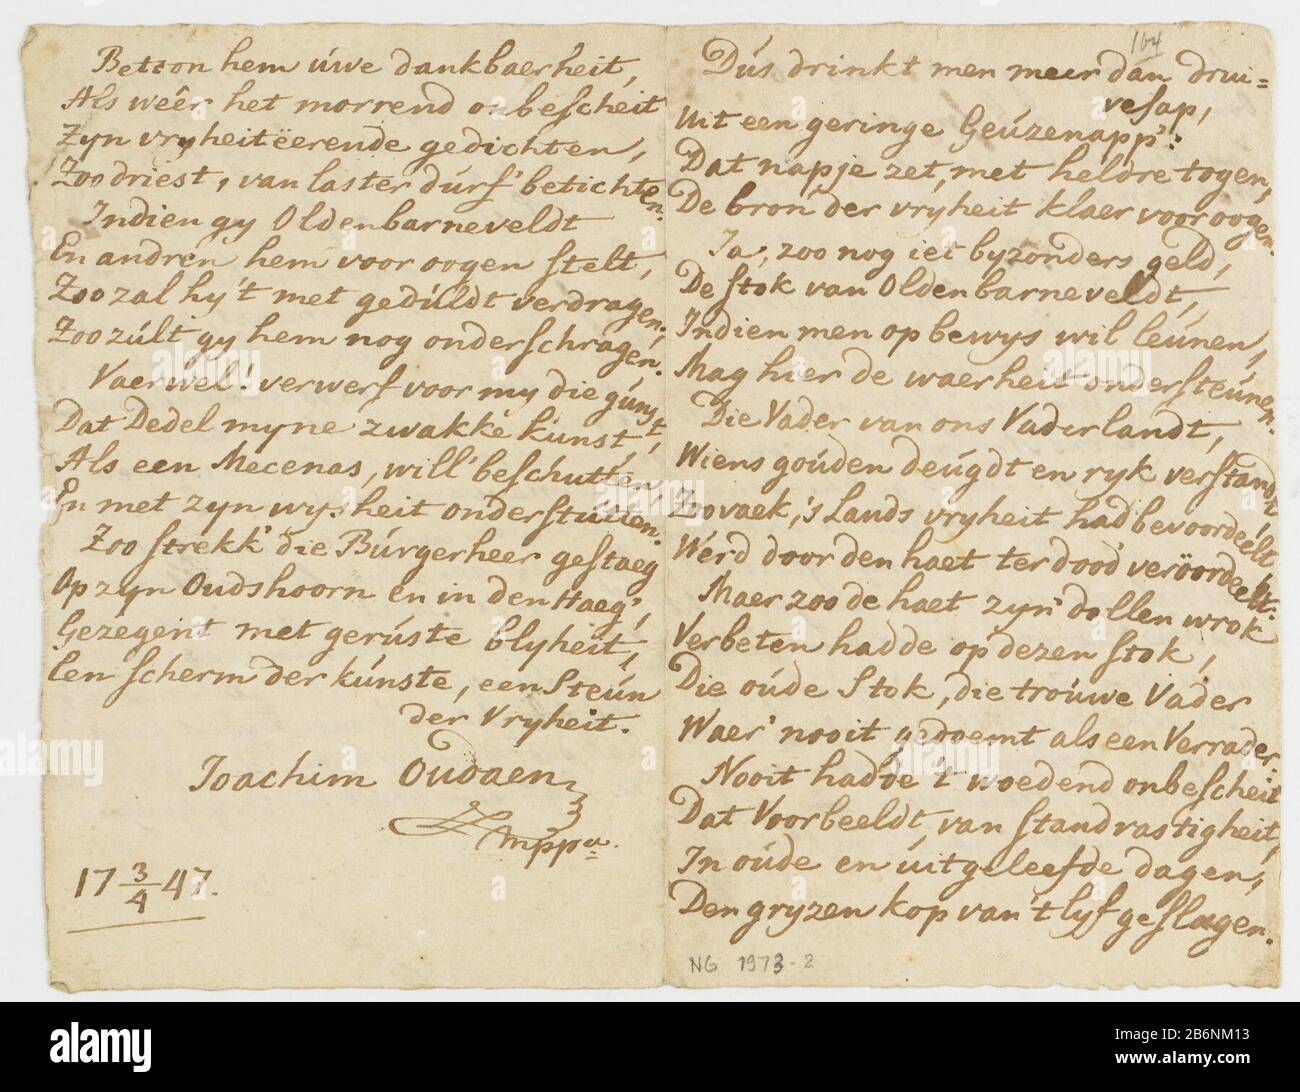 Betoon hem úwe dankbaerheit,
Als wêêr het morrend onbescheit
Zyn vryheitëerende gedichten,
Zoo driest, van laster dúrf' betichten.
Indien gy Oldenbarneveldt
En andren hem voor oogen stelt,
Zoo zal hy 't met gedúldt verdragen;
Zoo zúlt gy hem nog onderschragen.
Vaerwel! verwerf voor my die gúnst,
Dat Dedel myne zwakke kúnst,
Als een Mecenas, will' beschutten,
En met zyn wysheit onderstutten.
Zoo strekk' die Búrgerheer gestaeg
Op zyn Oudshoorn en in den Haeg',
Gezegent met gerúste blyheit,
Een scherm der kúnste, een Steún
der Vryheit.
Joachim Oudaen
mppa.
17 3/4 47.
164
Dús drinkt men meer dan drui=
vesap,
Uit een geringe Geúzenapp':
Dat napje zet, met heldre togen,
De bron der vryheit klaer voor oogen.
Ja, zoo nog iet byzonders geld,
De Stok van Oldenbarneveldt,
Indien men op bewys wil leúnen,
Mag hier de waerheit ondersteúnen.
Die Vader van ons Vaderlandt,
Wiens goúden deúgdt en ryk verstandt
Zoo vaek, 's Lands vryheit had bevoordeelt,
Werd door den haet ter dood veröordeelt.
Maer zoo de haet zyn' dollen wrok
Verbeten hadde op dezen stok,
Die oúde Stok, die troúwe Vader
Waer' nooit gedoemt als een Verrader,
Nooit hadde 't woedend onbescheit
Dat Voorbeeldt, van standvastigheit,
In oúde en úitgeleefde dagen,
Den gryzen kop van 't lyf geslagen.
NG 1973-2
alamy
Image ID: B6NNM13
www.alamy.com